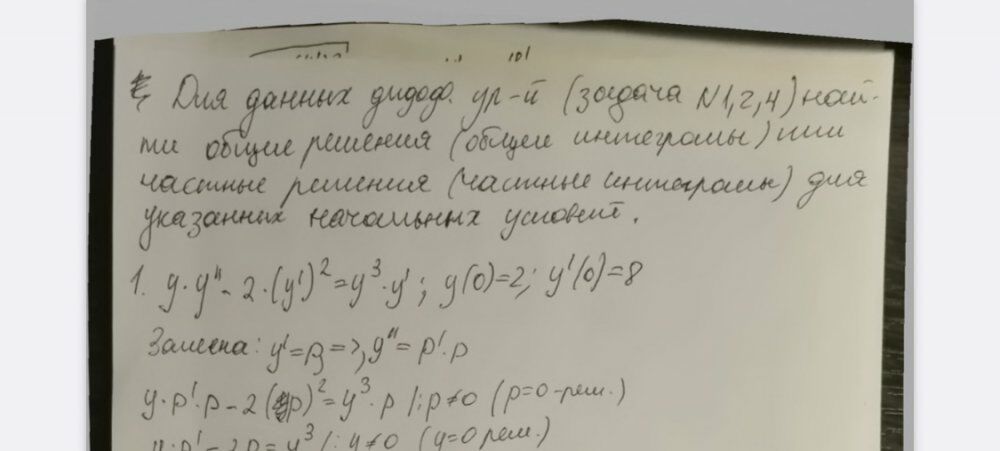 Для данных дифф. ур-й (задача N1,2,4) най-
ти общие решения (общие интегралы) или
частные решения (частные интегралы) для
указанных начальных условий.
1. y·y" - 2·(y')² = y³·y'; y(0)=2; y'(0)=8
Замена: y'=p => y" = p'·p
y·p'·p - 2(p)² = y³·p /:p≠0 (p=0-реш.)
y·p' - 2p = y³ /: y≠0 (y=0 реш.)